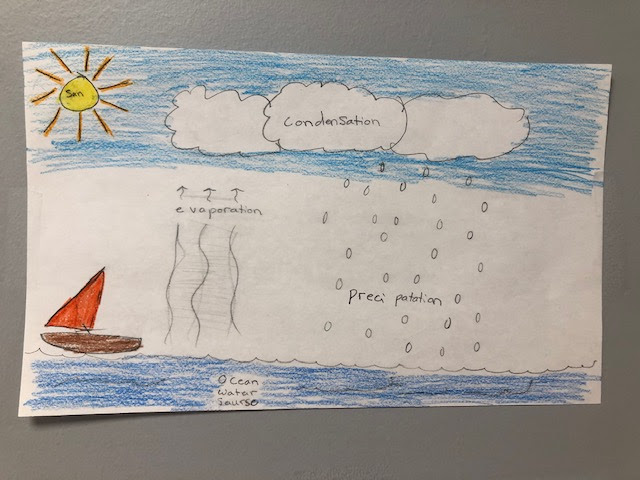 Sun
Condensation
evaporation
Precipatation
Ocean
water
saurse